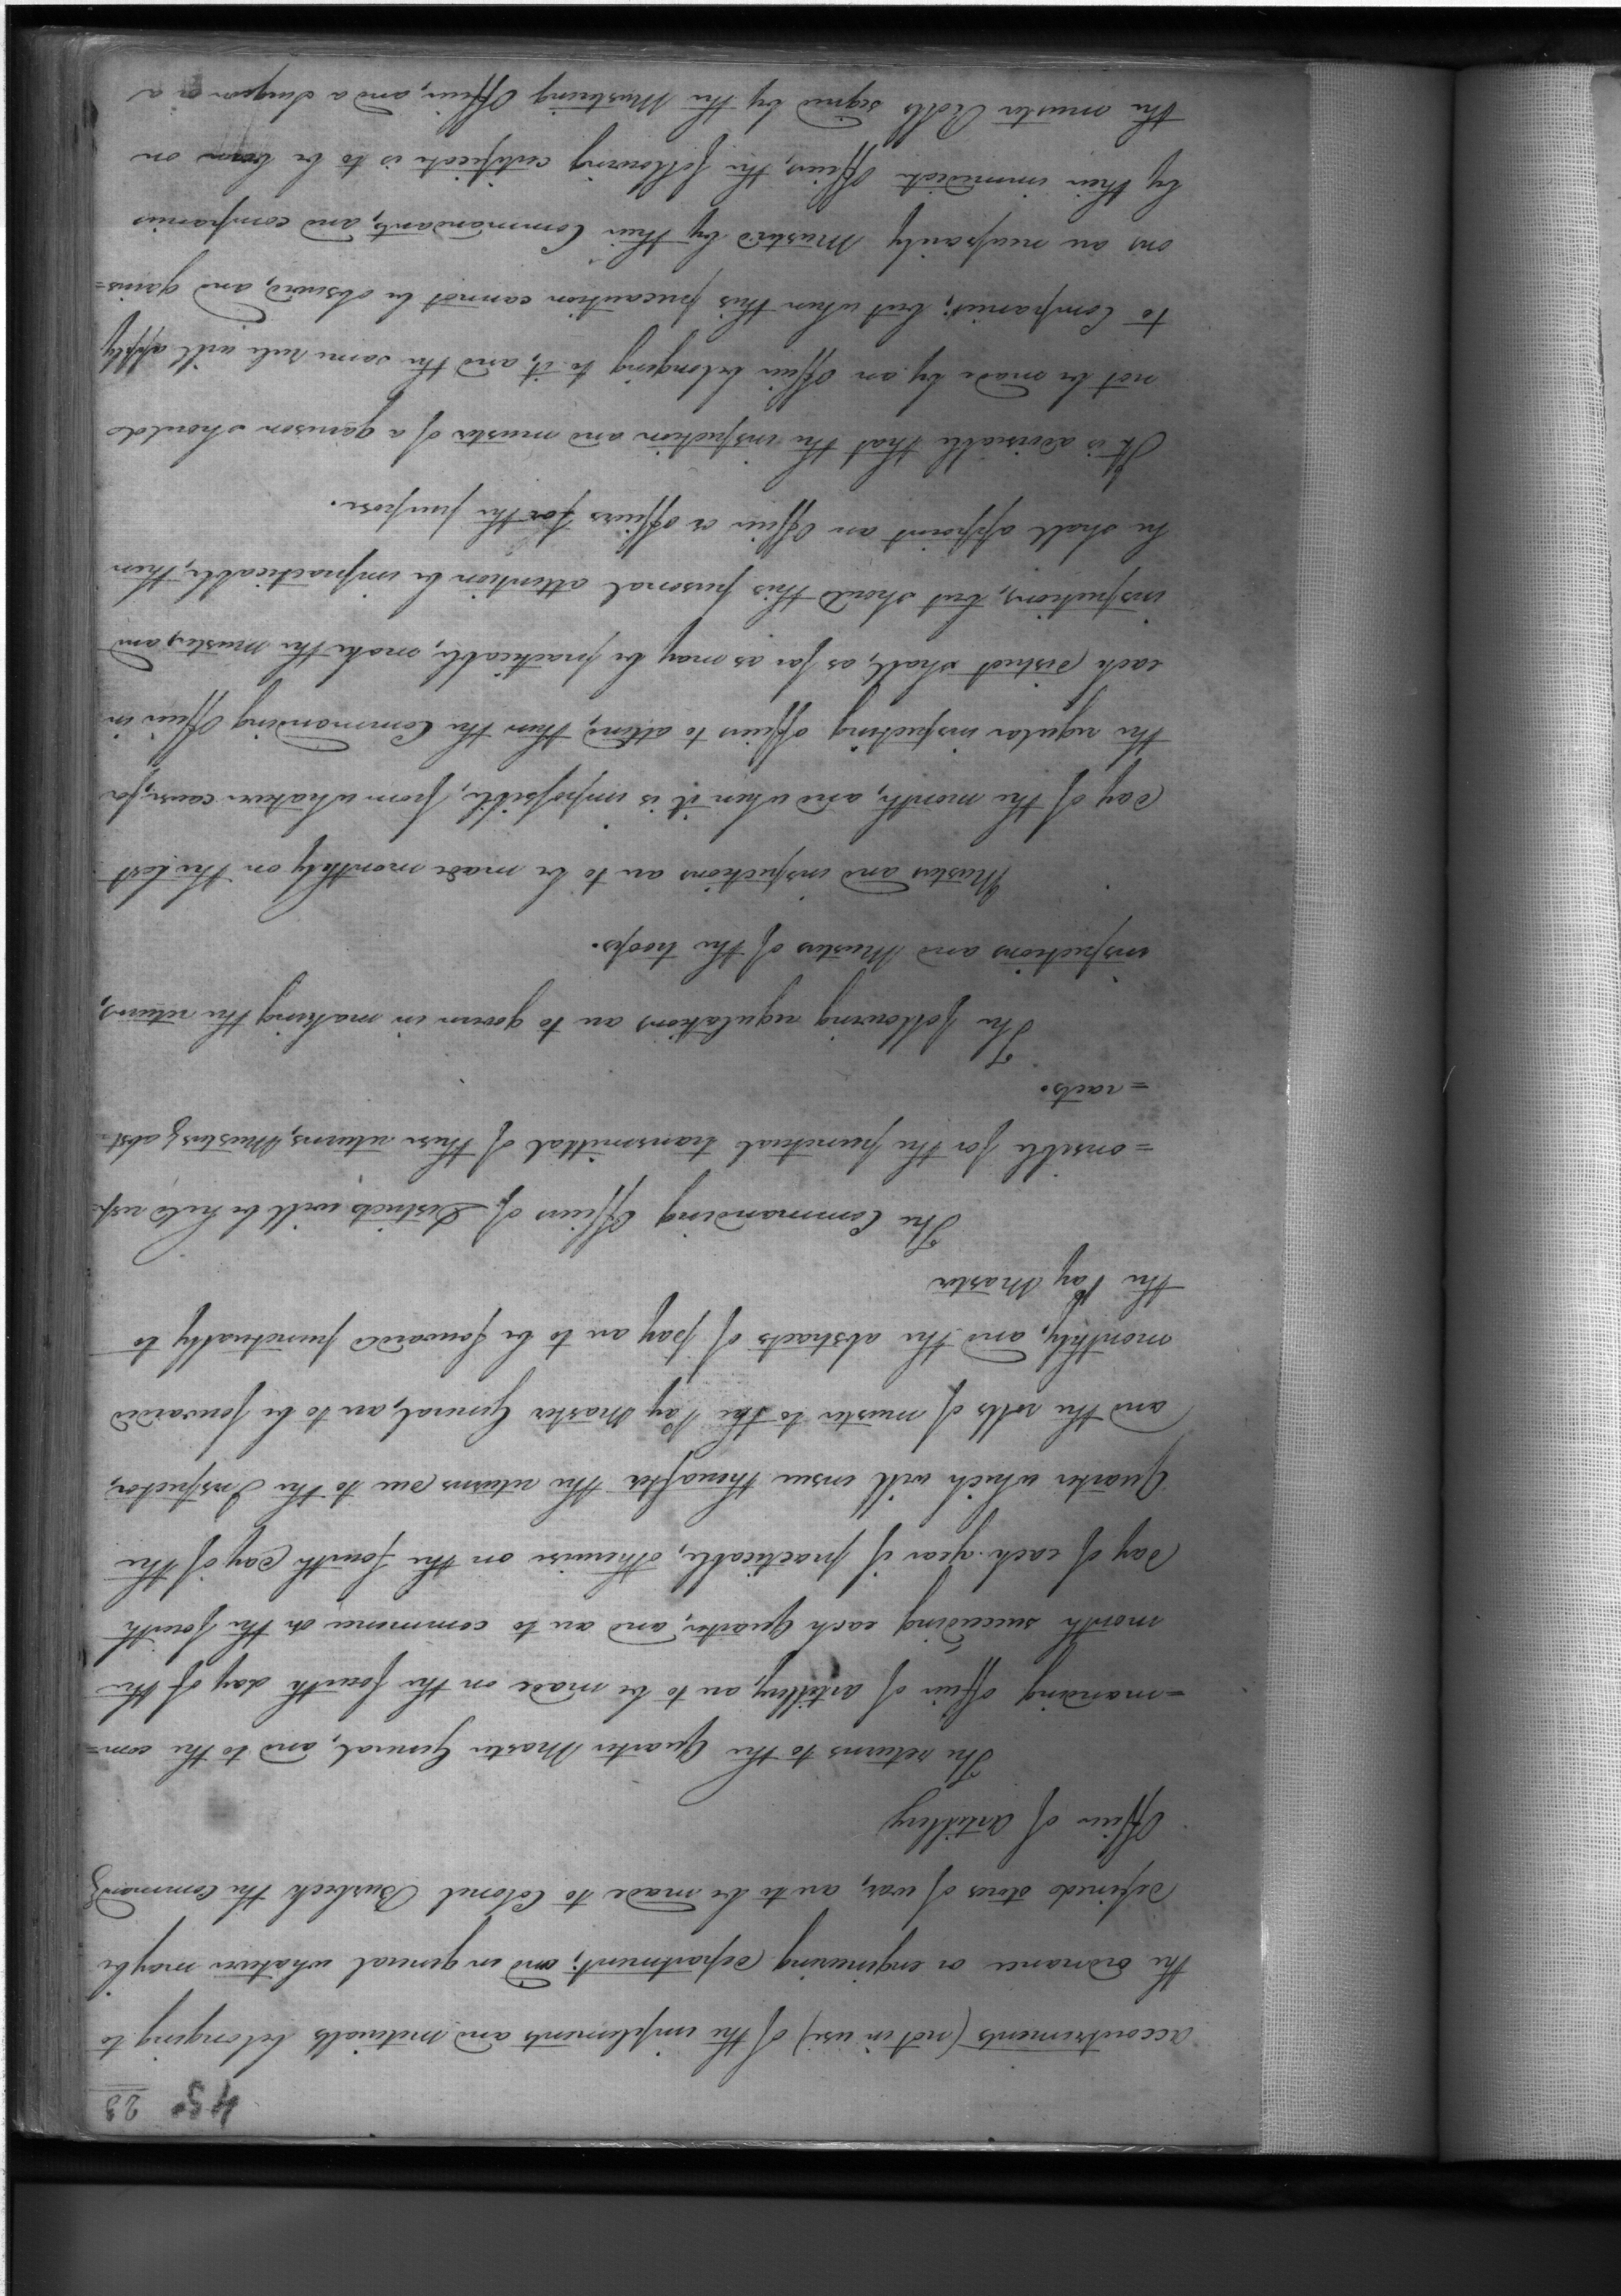 45. 23
accoutrements (not in use) of the implements and materials belonging to
the ordnance or engineering department; and in general whatever may be
defined stores of war, are to be made to Colonel Burbeck the Command.g
Officer of Artillery
The returns to the Quarter Master General, and to the com=
=manding officer of artillery, are to be made on the fourth day of the
month succeeding each Quarter, and are to commence on the fourth
day of each year if practicable, otherwise on the fourth day of the
Quarter which will ensue thereafter the returns due to the Inspector,
and the rolls of muster to the Pay Master General, are to be forwarded
monthly, and the abstracts of pay are to be forwarded punctually to
the Pay Master
The Commanding Officers of Districts will be held resp=
=onsible for the punctual transmittal of these returns, Musters, abst=
=racts.
The following regulations are to govern in making the returns,
inspections and Musters of the troops.
Musters and inspections are to be made monthly on the last
day of the month, and when it is impossible, from whatever cause, for
the regular inspecting officer to attend, then the Commanding Officer in
each district shall, as far as may be practicable, make the muster, and
inspection, but should this personal attention be impracticable, then
he shall appoint an Officer or officers for the purpose.
It is advisable that the inspection and muster of a garrison should
not be made by an Officer belonging to it, and the same rule will apply
to Companies; but when this precaution cannot be observed, and garris=
ons are necessarily Mustered by their Commandants, and companies
by their immediate Officers, the following certificate is to be borne on
the muster Rolls signed by the Mustering Officer, and a Surgeon or a